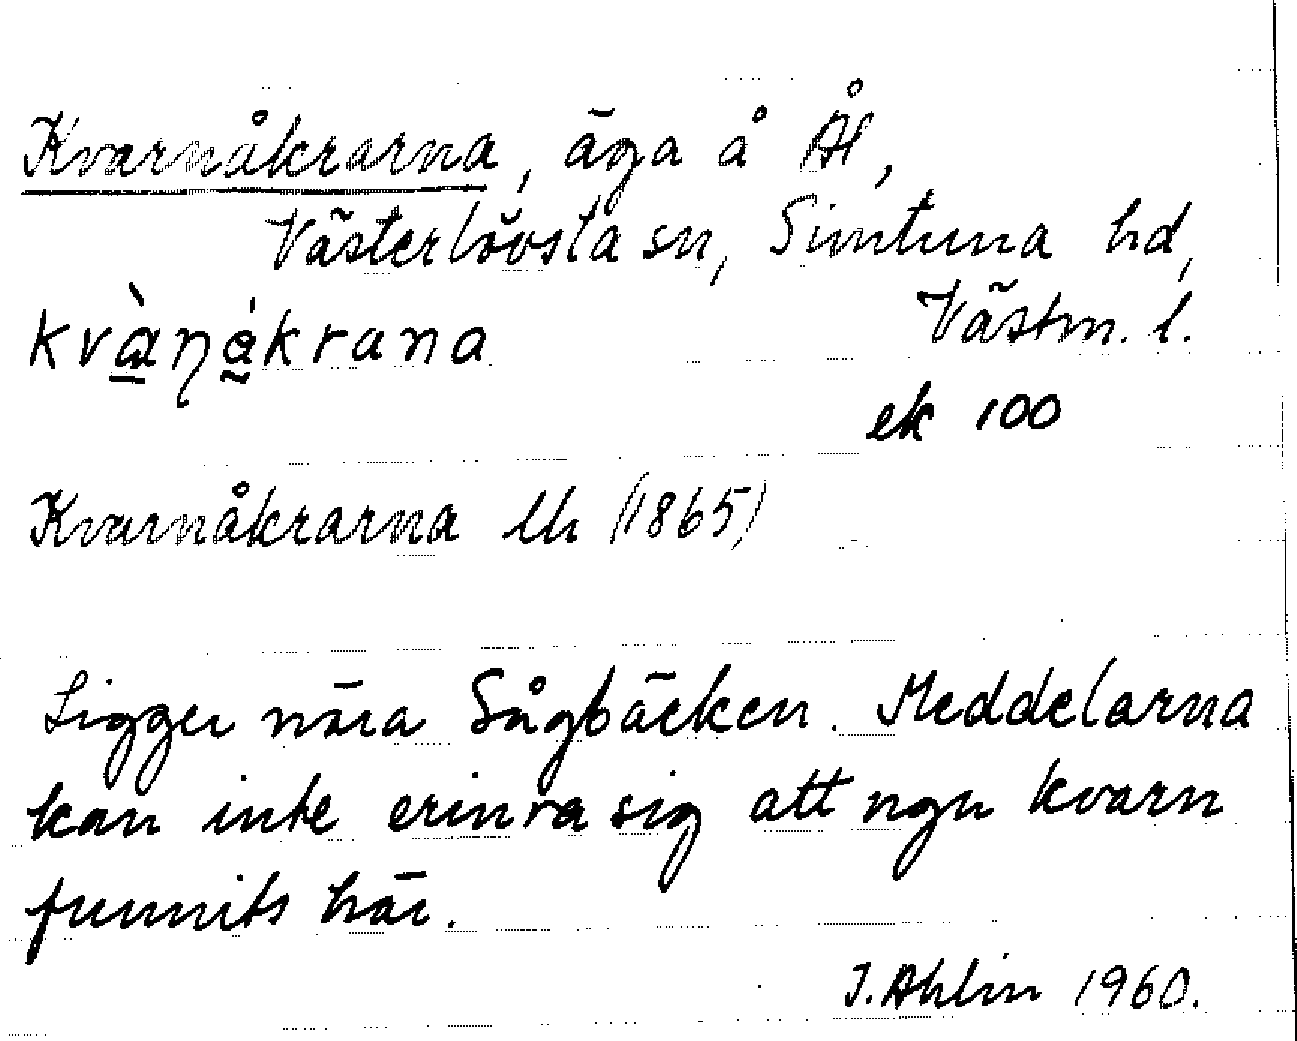 Kvarnåkrarna, äga å Ål,
Västerlövsta sn, Simtuna hd,
Västm. l.
kvàŋákrana
ek 100
Kvarnåkrarna Lh (1865)
Ligger nära Sågbäcken. Meddelarna
kan inte erinra sig att ngn kvarn
funnits här.
J. Ahlin 1960.